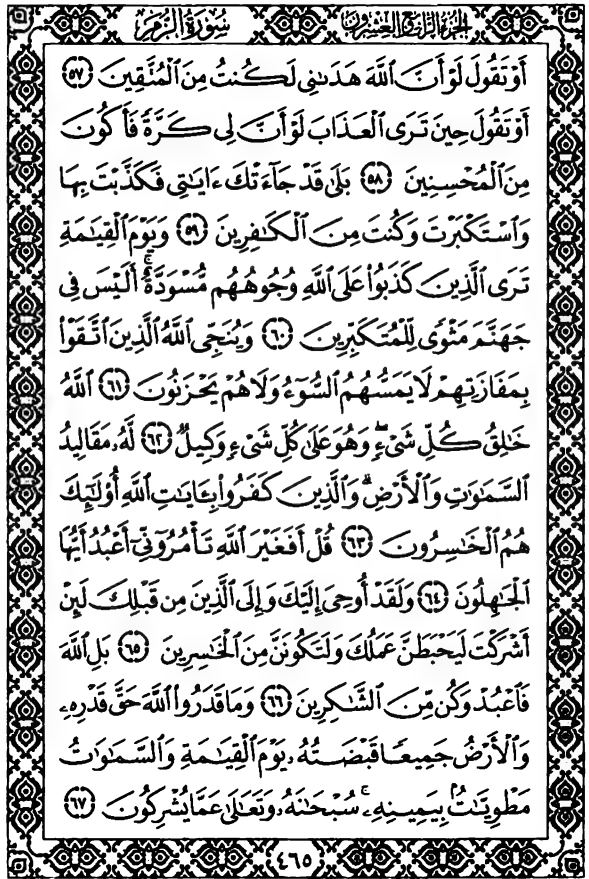 الجزء الرابع والعشرون سورة الزمر
أَوْ تَقُولَ لَوْ أَنَّ ٱللَّهَ هَدَىٰنِي لَكُنتُ مِنَ ٱلْمُتَّقِينَ ٥٧
أَوْ تَقُولَ حِينَ تَرَى ٱلْعَذَابَ لَوْ أَنَّ لِي كَرَّةً فَأَكُونَ
مِنَ ٱلْمُحْسِنِينَ ٥٨ بَلَىٰ قَدْ جَآءَتْكَ ءَايَٰتِي فَكَذَّبْتَ بِهَا
وَٱسْتَكْبَرْتَ وَكُنتَ مِنَ ٱلْكَٰفِرِينَ ٥٩ وَيَوْمَ ٱلْقِيَٰمَةِ
تَرَى ٱلَّذِينَ كَذَبُوا۟ عَلَى ٱللَّهِ وُجُوهُهُم مُّسْوَدَّةٌ ۚ أَلَيْسَ فِي
جَهَنَّمَ مَثْوًى لِّلْمُتَكَبِّرِينَ ٦٠ وَيُنَجِّي ٱللَّهُ ٱلَّذِينَ ٱتَّقَوْا۟
بِمَفَازَتِهِمْ لَا يَمَسُّهُمُ ٱلسُّوٓءُ وَلَا هُمْ يَحْزَنُونَ ٦١ ٱللَّهُ
خَٰلِقُ كُلِّ شَيْءٍ ۖ وَهُوَ عَلَىٰ كُلِّ شَيْءٍ وَكِيلٌ ٦٢ لَّهُۥ مَقَالِيدُ
ٱلسَّمَٰوَٰتِ وَٱلْأَرْضِ ۗ وَٱلَّذِينَ كَفَرُوا۟ بِـَٔايَٰتِ ٱللَّهِ أُو۟لَٰٓئِكَ
هُمُ ٱلْخَٰسِرُونَ ٦٣ قُلْ أَفَغَيْرَ ٱللَّهِ تَأْمُرُوٓنِّيٓ أَعْبُدُ أَيُّهَا
ٱلْجَٰهِلُونَ ٦٤ وَلَقَدْ أُوحِيَ إِلَيْكَ وَإِلَى ٱلَّذِينَ مِن قَبْلِكَ لَئِنْ
أَشْرَكْتَ لَيَحْبَطَنَّ عَمَلُكَ وَلَتَكُونَنَّ مِنَ ٱلْخَٰسِرِينَ ٦٥ بَلِ ٱللَّهَ
فَٱعْبُدْ وَكُن مِّنَ ٱلشَّٰكِرِينَ ٦٦ وَمَا قَدَرُوا۟ ٱللَّهَ حَقَّ قَدْرِهِۦ
وَٱلْأَرْضُ جَمِيعًا قَبْضَتُهُۥ يَوْمَ ٱلْقِيَٰمَةِ وَٱلسَّمَٰوَٰتُ
مَطْوِيَّٰتٌۢ بِيَمِينِهِۦ ۚ سُبْحَٰنَهُۥ وَتَعَٰلَىٰ عَمَّا يُشْرِكُونَ ٦٧
٤٦٥